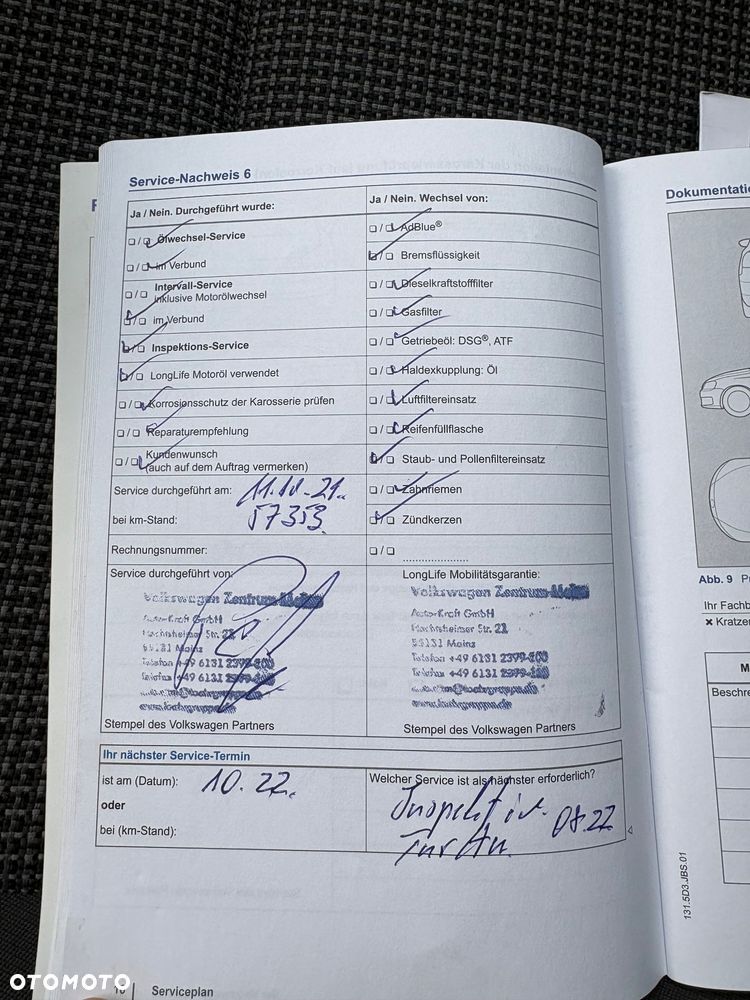 Service-Nachweis 6
Ja / Nein. Durchgeführt wurde:
❑ / ❑ Ölwechsel-Service
❑ / ❑ im Verbund
❑ / ❑ Intervall-Service
inklusive Motorölwechsel
❑ / ❑ im Verbund
❑ / ❑ Inspektions-Service
❑ / ❑ LongLife Motoröl verwendet
❑ / ❑ Korrosionsschutz der Karosserie prüfen
❑ / ❑ Reparaturempfehlung
❑ / ❑ Kundenwunsch
(auch auf dem Auftrag vermerken)
Service durchgeführt am:
bei km-Stand: 57353
Rechnungsnummer:
Service durchgeführt von:
Volkswagen Zentrum Mainz
Auto-Kraft GmbH
Str. 21
55131 Mainz
Telefon +49 6131
Telefax +49 6131
Stempel des Volkswagen Partners
Ja / Nein. Wechsel von:
❑ / ❑ AdBlue®
❑ / ❑ Bremsflüssigkeit
❑ / ❑ Dieselkraftstofffilter
❑ / ❑ Gasfilter
❑ / ❑ Getriebeöl: DSG®, ATF
❑ / ❑ Haldexkupplung: Öl
❑ / ❑ Luftfiltereinsatz
❑ / ❑ Reifenfüllflasche
❑ / ❑ Staub- und Pollenfiltereinsatz
❑ / ❑ Zahnriemen
❑ / ❑ Zündkerzen
❑ / ❑ ......................
LongLife Mobilitätsgarantie:
Volkswagen Zentrum Mainz
Auto-Kraft GmbH
Str. 21
55131 Mainz
Telefon +49 6131
Telefax +49 6131
Stempel des Volkswagen Partners
Ihr nächster Service-Termin
ist am (Datum): 10.22.
oder
bei (km-Stand):
Welcher Service ist als nächster erforderlich?
08.22
10 Serviceplan
Dokumentatio
Abb. 9
Ihr Fachb
× Kratzer
M
Beschre
131.5D3.JBS.01
OTOMOTO